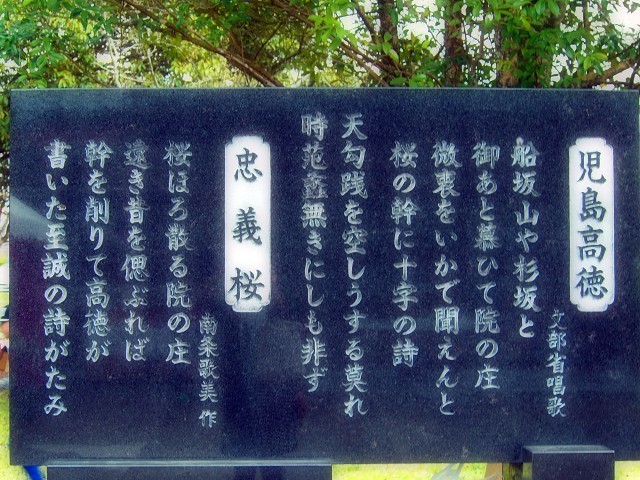 児島高徳
文部省唱歌
船坂山や杉坂と
御あと慕ひて院の庄
微衷をいかで聞えんと
桜の幹に十字の詩
天勾践を空しうする莫れ
時范蠡無きにしも非ず
忠義桜
南条歌美作
桜ほろ散る院の庄
遠き昔を偲ぶれば
幹を削りて高徳が
書いた至誠の詩がたみ